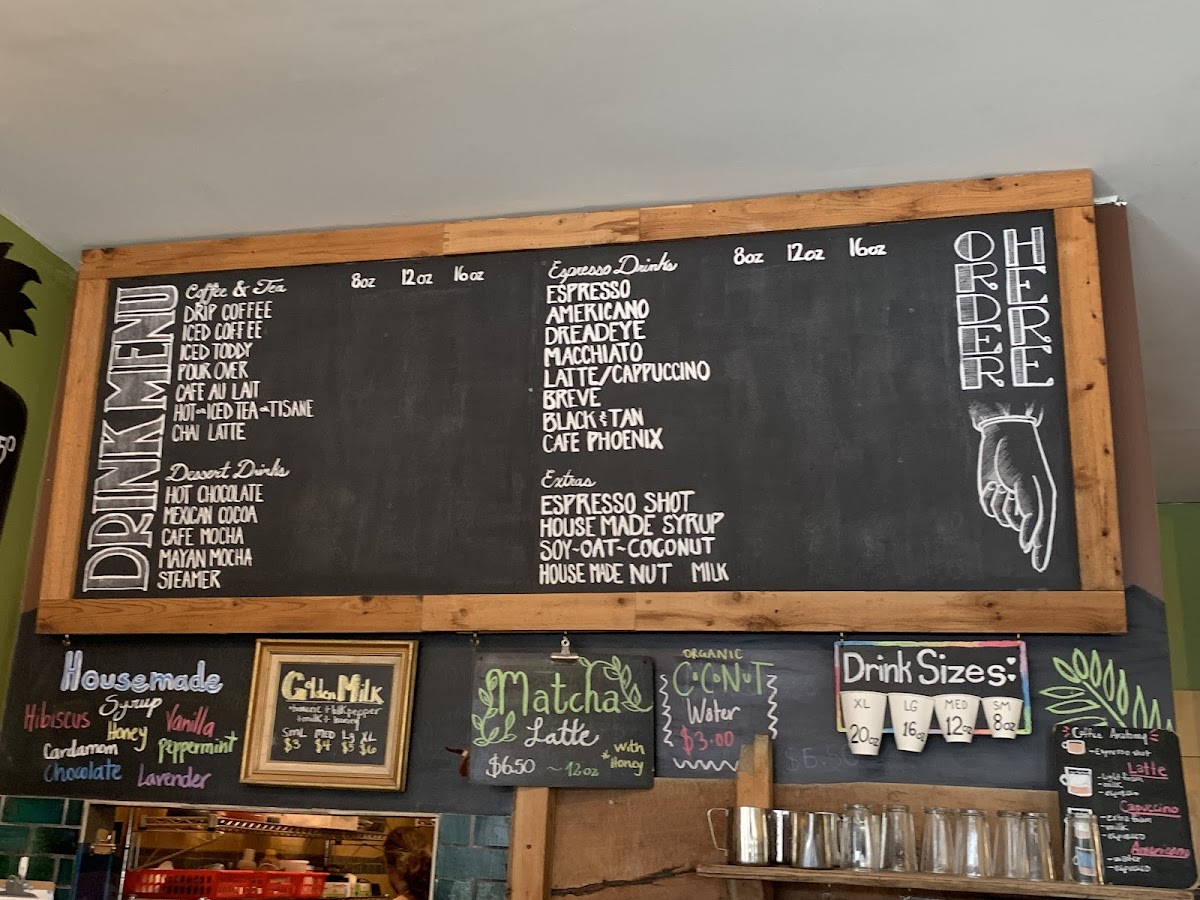 DRINK MENU
Coffee & Tea 8oz 12oz 16oz
DRIP COFFEE
ICED COFFEE
ICED TODDY
POUR OVER
CAFE AU LAIT
HOT~ICED TEA~TISANE
CHAI LATTE
Dessert Drinks
HOT CHOCOLATE
MEXICAN COCOA
CAFE MOCHA
MAYAN MOCHA
STEAMER
Espresso Drinks 8oz 12oz 16oz
ESPRESSO
AMERICANO
DREADEYE
MACCHIATO
LATTE/CAPPUCCINO
BREVE
BLACK & TAN
CAFE PHOENIX
Extras
ESPRESSO SHOT
HOUSE MADE SYRUP
SOY~OAT~COCONUT
HOUSE MADE NUT MILK
ORDER
HERE
Housemade
Syrup
Hibiscus Vanilla
Honey
Cardamom Peppermint
Chocolate Lavender
Golden Milk
+milk+ honey
SML MED LG XL
$3 $4 $5 $6
Matcha
Latte
$6.50 ~12oz
*with
*Honey
ORGANIC
COCONUT
Water
$3.00
$6.50
Drink Sizes:
XL LG MED SM
20oz 16oz 12oz 8oz
Coffee Anatomy
-Espresso shot
Latte
-light foam
-milk
-espresso
Capuccino
-extra foam
-milk
-espresso
Americano
-water
-espresso